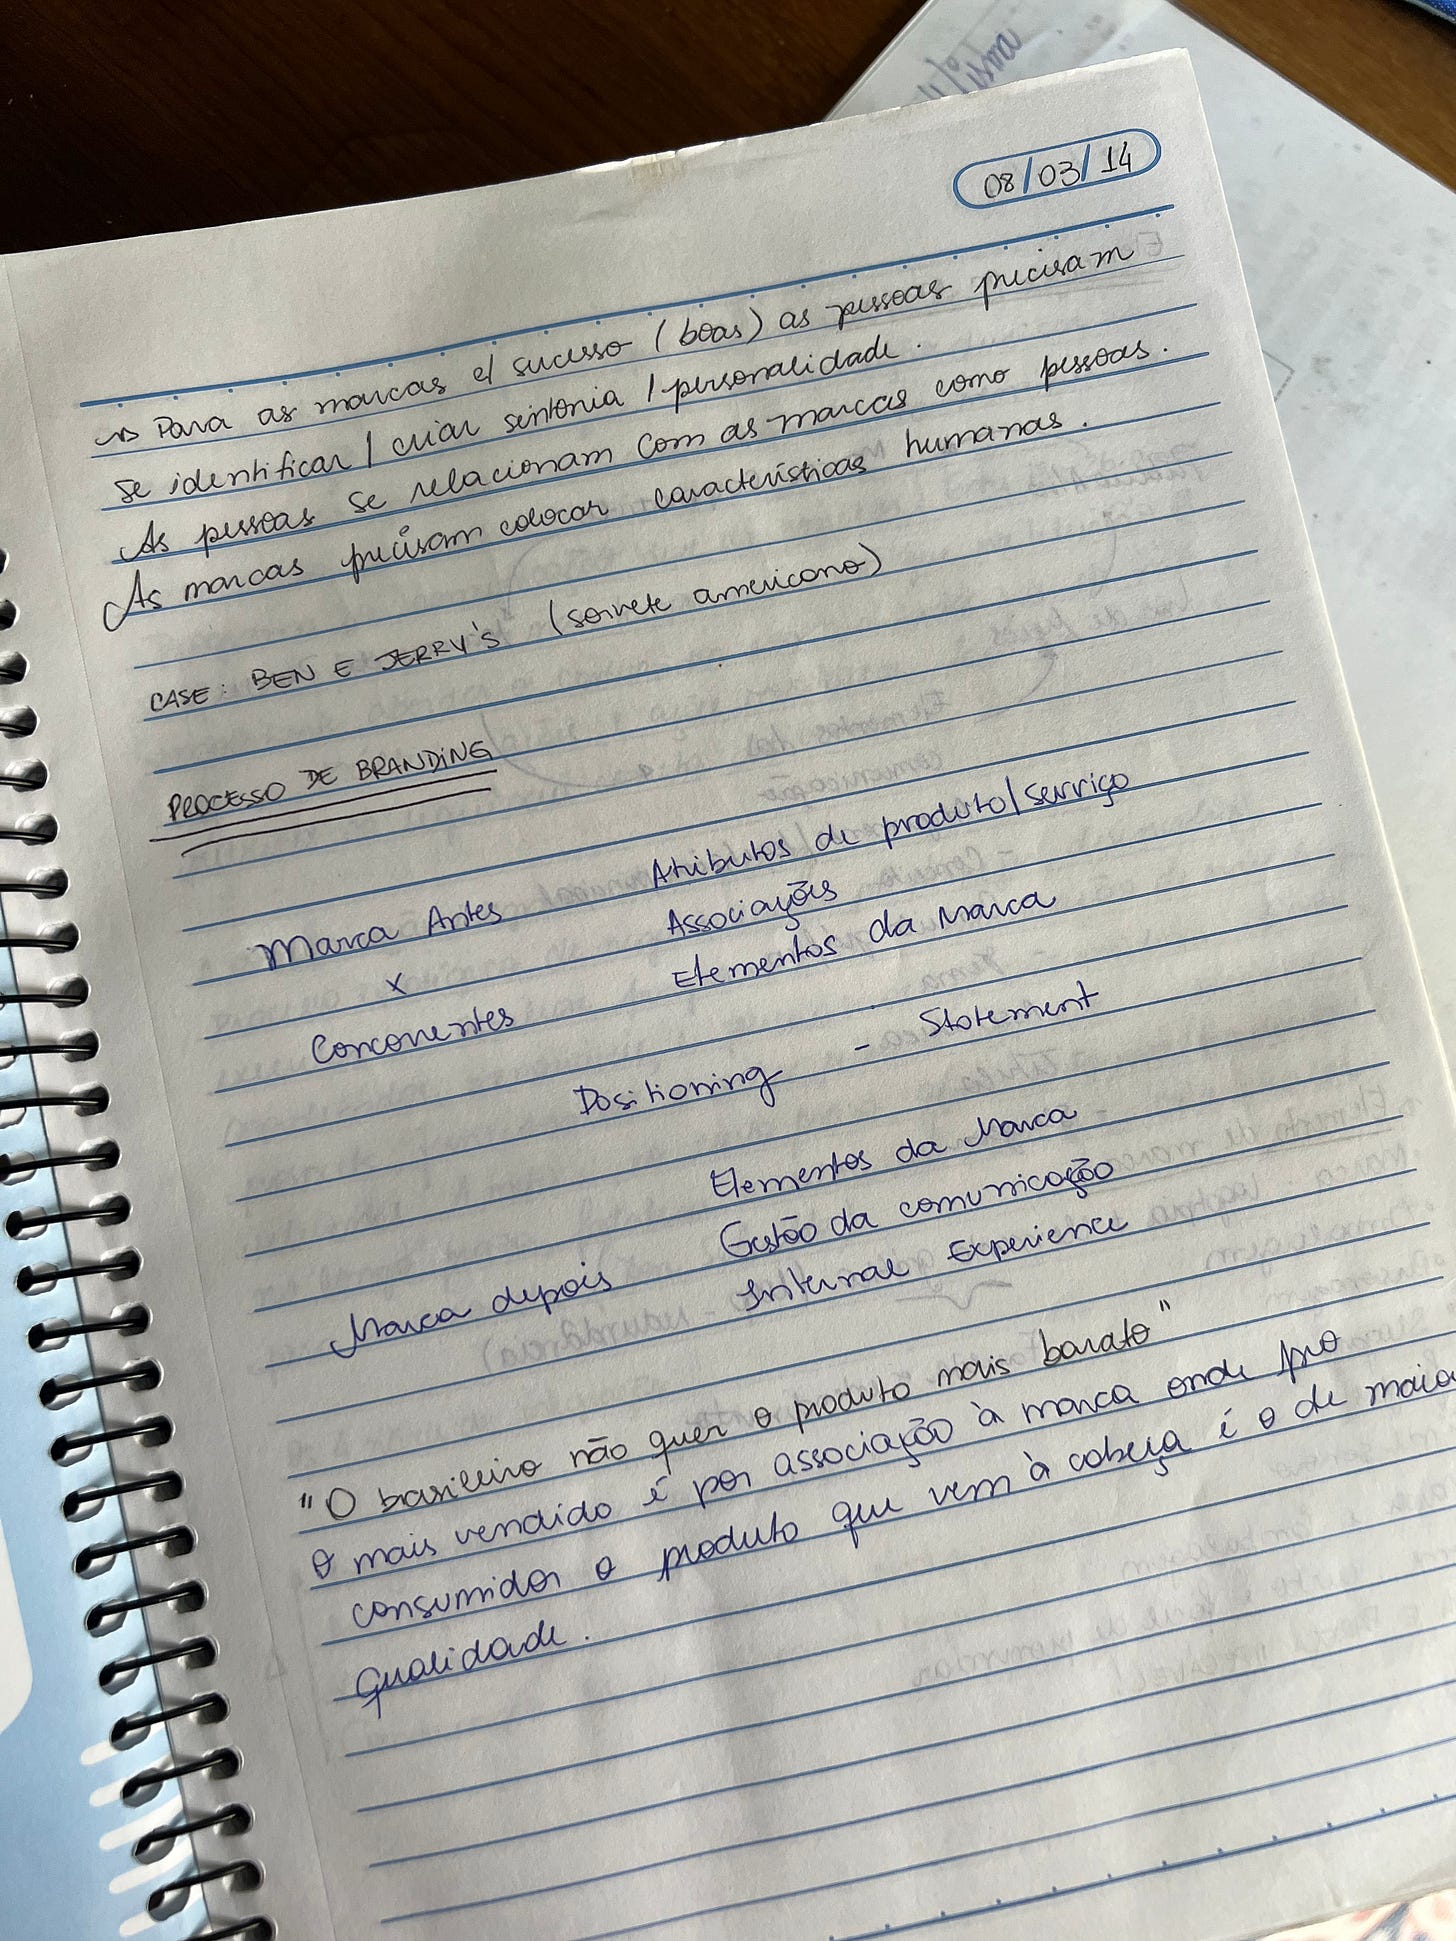 08/03/14
→ Para as marcas c/ sucesso (boas) as pessoas precisam
se identificar / criar sintonia / personalidade.
As pessoas se relacionam com as marcas como pessoas.
As marcas precisam colocar características humanas.
CASE: BEN E JERRY'S (sorvete americano)
PROCESSO DE BRANDING
Atributos de produto/serviço
Marca Antes Associações
x Elementos da Marca
Concorrentes
Positioning - Statement
Elementos da Marca
Gestão da comunicação
Marca depois Internal Experience
"O brasileiro não quer o produto mais barato"
O mais vendido é por associação à marca onde pro
consumidor o produto que vem à cabeça é o de maior
qualidade.